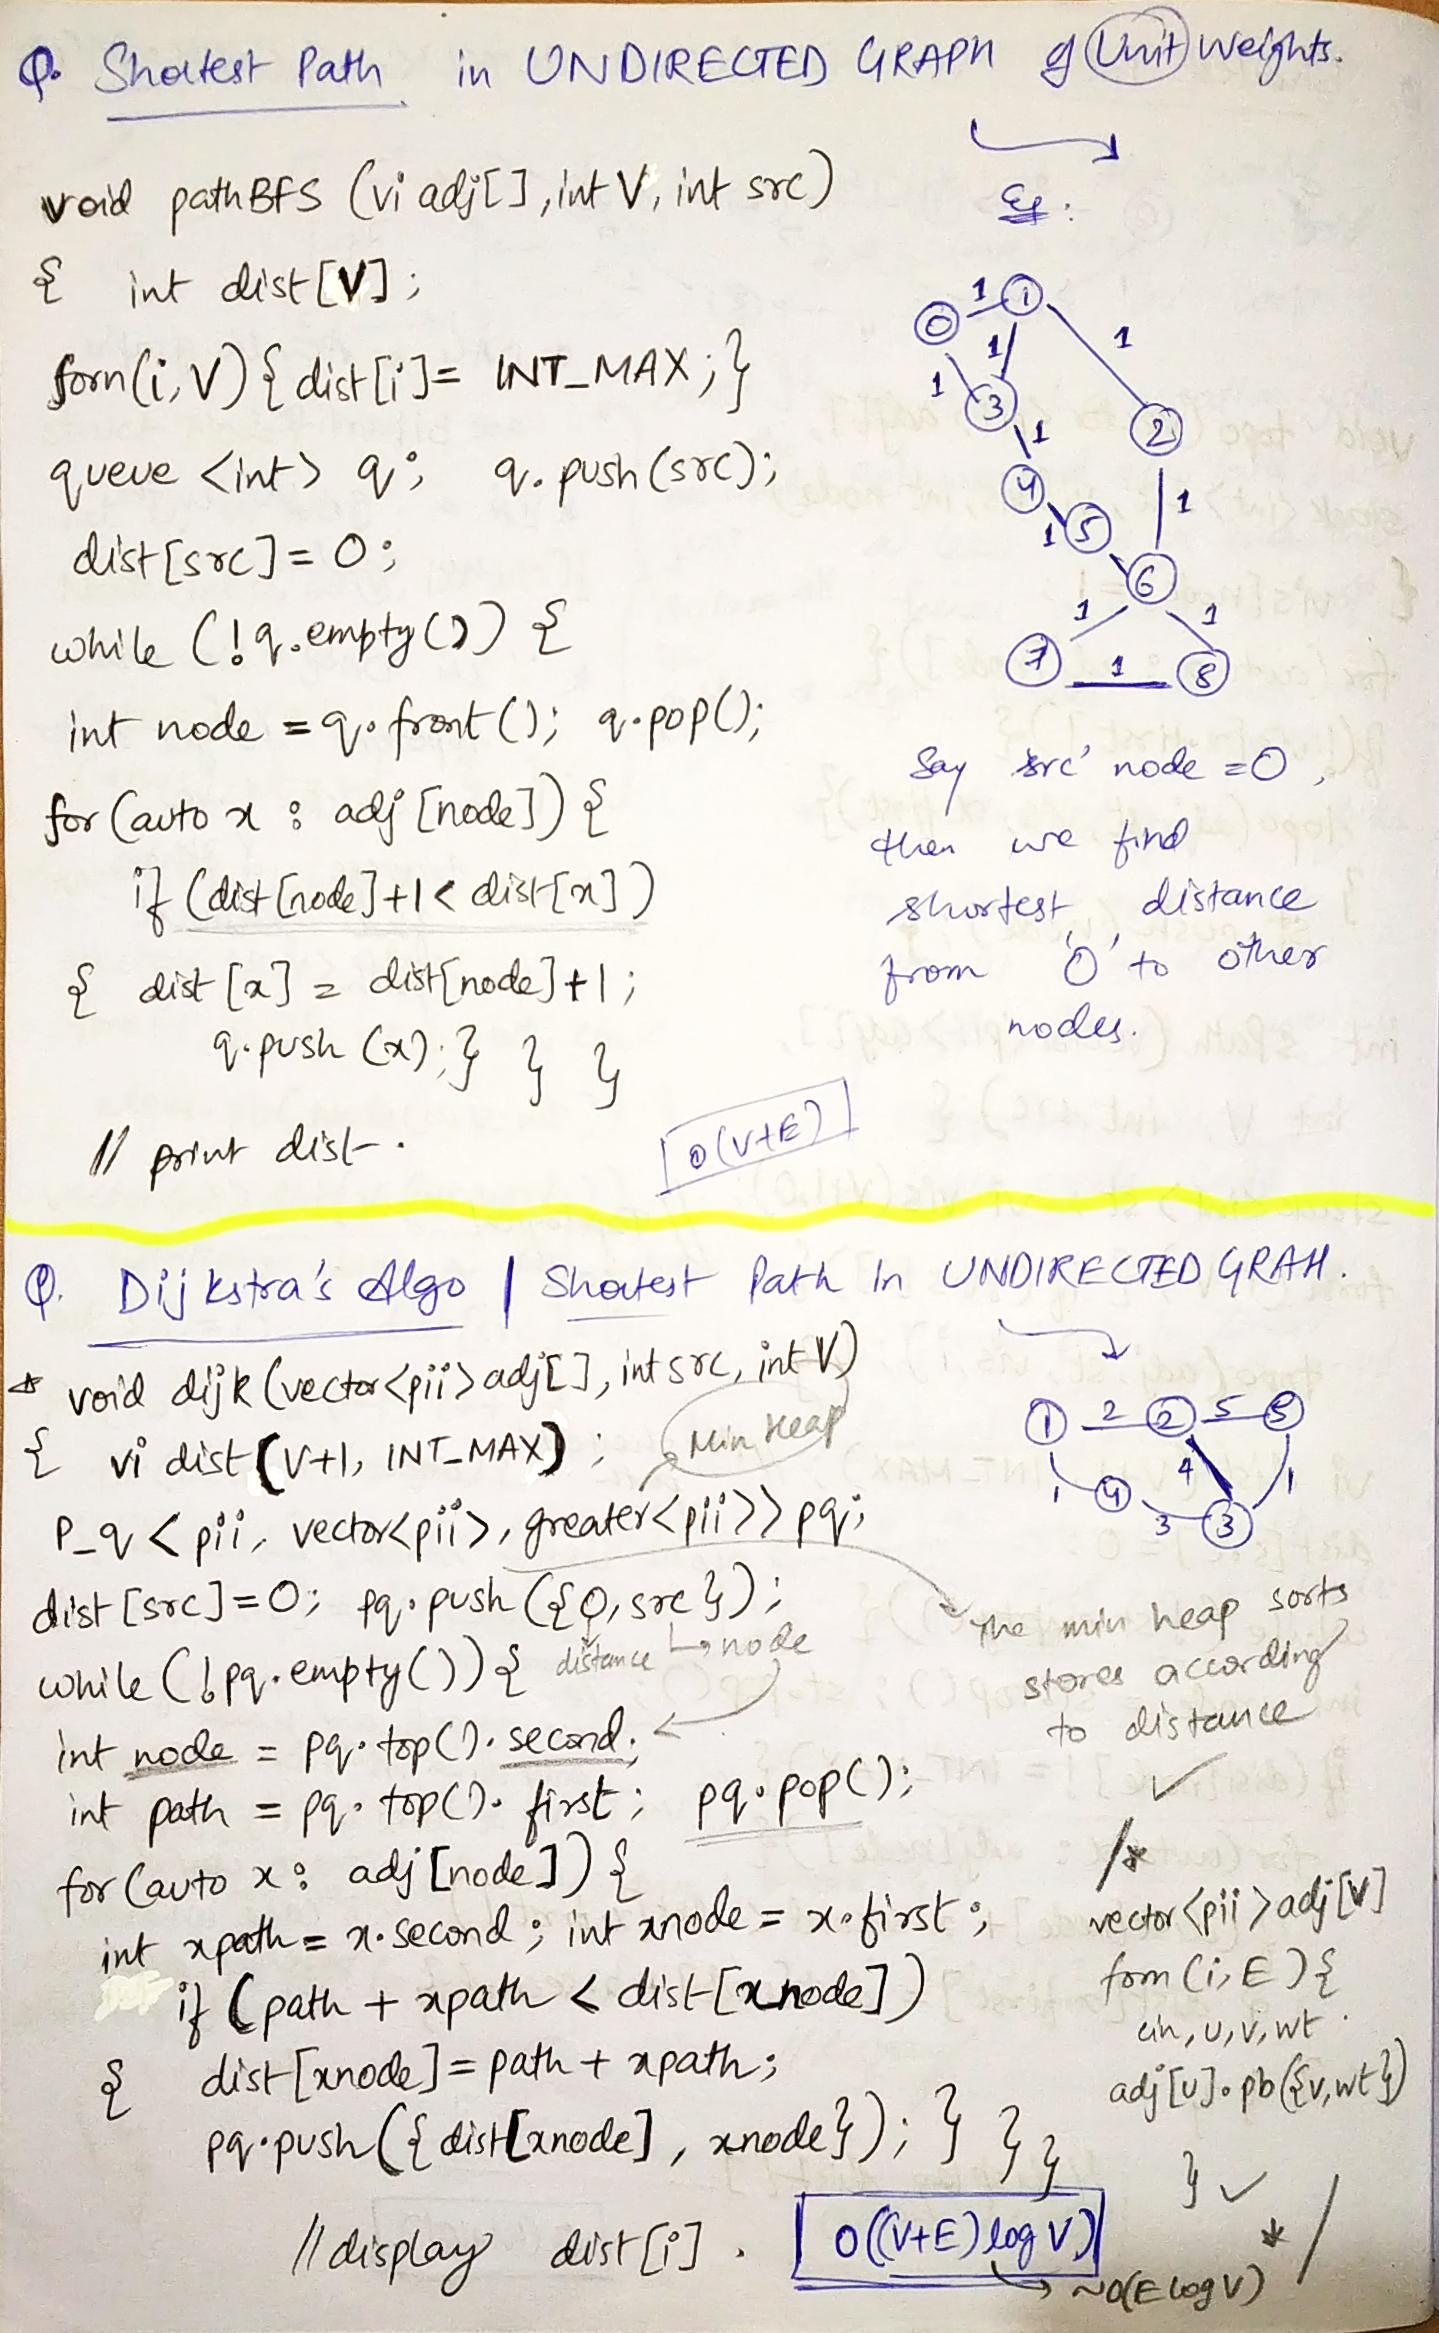 Q. Shortest Path in UNDIRECTED GRAPH of Unit Weights.
void pathBFS (vi adj[], int V, int src)
{ int dist[V];
forn(i, V) { dist[i] = INT_MAX; }
queue <int> q; q.push(src);
dist[src] = 0;
while (!q.empty()) {
int node = q.front(); q.pop();
for (auto x : adj[node]) {
if (dist[node]+1 < dist[x])
{ dist[x] = dist[node]+1;
q.push(x); } } }
// print dist.
O(V+E)
Eg:
0 1 1
1 1 1
3 2
1
4 1
1 5
6
1 1
7 1 8
Say 'src' node = 0,
then we find
shortest distance
from '0' to other
nodes.
Q. Dijkstra's Algo | Shortest Path In UNDIRECTED GRAH.
* void dijk (vector<pii> adj[], int src, int V)
{ vi dist(V+1, INT_MAX);
Min Heap
P_q < pii, vector<pii>, greater<pii>> pq;
dist[src]=0; pq.push({0, src});
distance node
while (!pq.empty()) {
int node = pq.top().second;
int path = pq.top().first; pq.pop();
for (auto x : adj[node]) {
int xpath = x.second; int xnode = x.first;
if (path + xpath < dist[xnode])
{ dist[xnode] = path + xpath;
pq.push({dist[xnode], xnode}); } } }
// display dist[i].
O((V+E) log V)
~O(E log V)
1 2 2 5 5
4
1 4 3 3 1
The min heap sorts
stores according
to distance
/*
vector<pii> adj[V]
forn(i, E) {
cin, u, v, wt.
adj[u].pb({v, wt})
}
*/